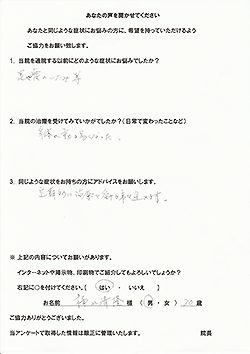 あなたの声を聞かせてください
あなたと同じような症状にお悩みの方に、希望を持っていただけるよう
ご協力をお願い致します。
1. 当院を通院する以前にどのような症状にお悩みでしたか?
2. 当院の治療を受けてみていかがでしたか?(日常で変わったことなど)
3. 同じような症状をお持ちの方にアドバイスをお願いします。
※ 上記の内容についてお願いがあります。
インターネットや掲示物、印刷物でご紹介してもよろしいでしょうか?
右記に○を付けてください。( はい ・ いいえ )
お名前 様 ( 男 ・ 女 ) 30 歳
ご協力ありがとうございました。
当アンケートで取得した情報は厳正に管理いたします。 院長